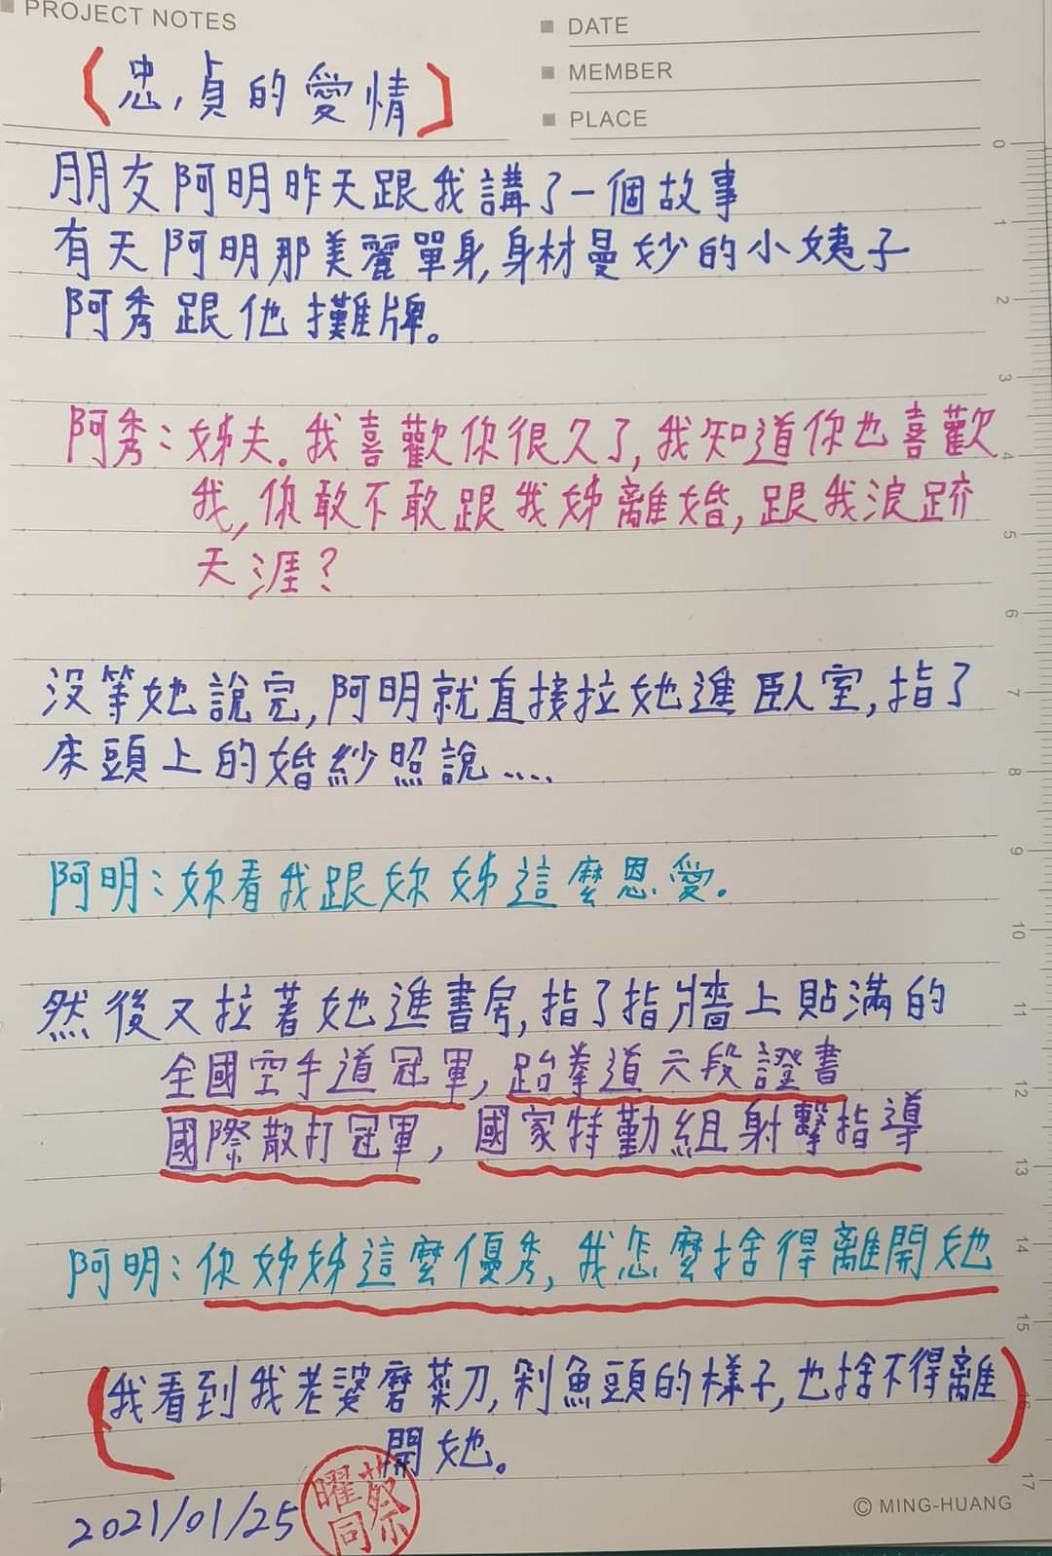 PROJECT NOTES
DATE
MEMBER
PLACE
(忠貞的愛情)
朋友阿明昨天跟我講了一個故事
有天阿明那美麗單身,身材曼妙的小姨子
阿秀跟他攤牌。
阿秀:姊夫。我喜歡你很久了,我知道你也喜歡
我,你敢不敢跟我姊離婚,跟我浪跡
天涯?
沒等她說完,阿明就直接拉她進臥室,指了
床頭上的婚紗照說....
阿明:妳看我跟妳姊這麼恩愛.
然後又拉著她進書房,指了指牆上貼滿的
全國空手道冠軍,跆拳道六段證書
國際散打冠軍,國家特勤組射擊指導
阿明:你姊姊這麼優秀,我怎麼捨得離開她
(我看到我老婆磨菜刀,剁魚頭的樣子,也捨不得離
開她。)
2021/01/25
蔡曜同
© MING-HUANG
0
1
2
3
4
5
6
7
8
9
10
11
12
13
14
15
16
17